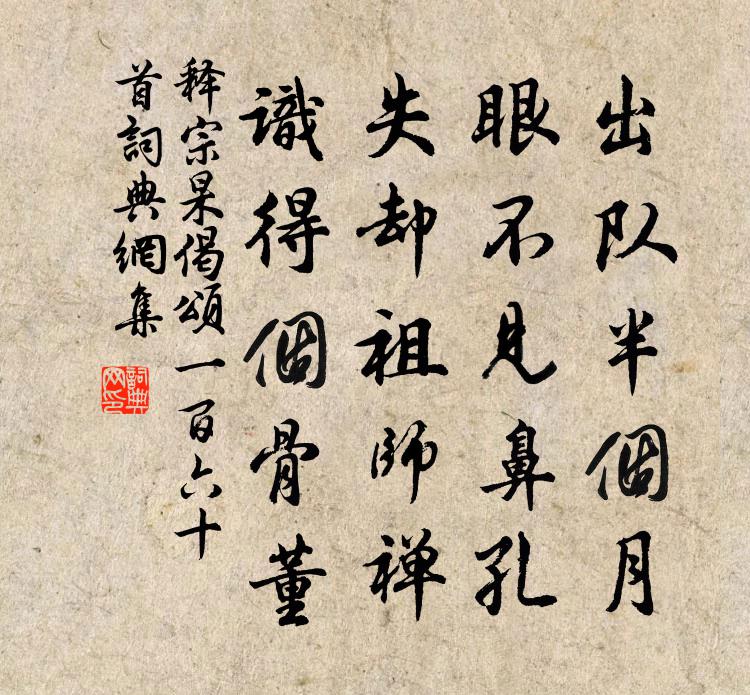 出队半個月
眼不見鼻孔
失却祖師禅
識得個骨董
释宗杲偈頌一百六十
首詞典網集
詞典网印